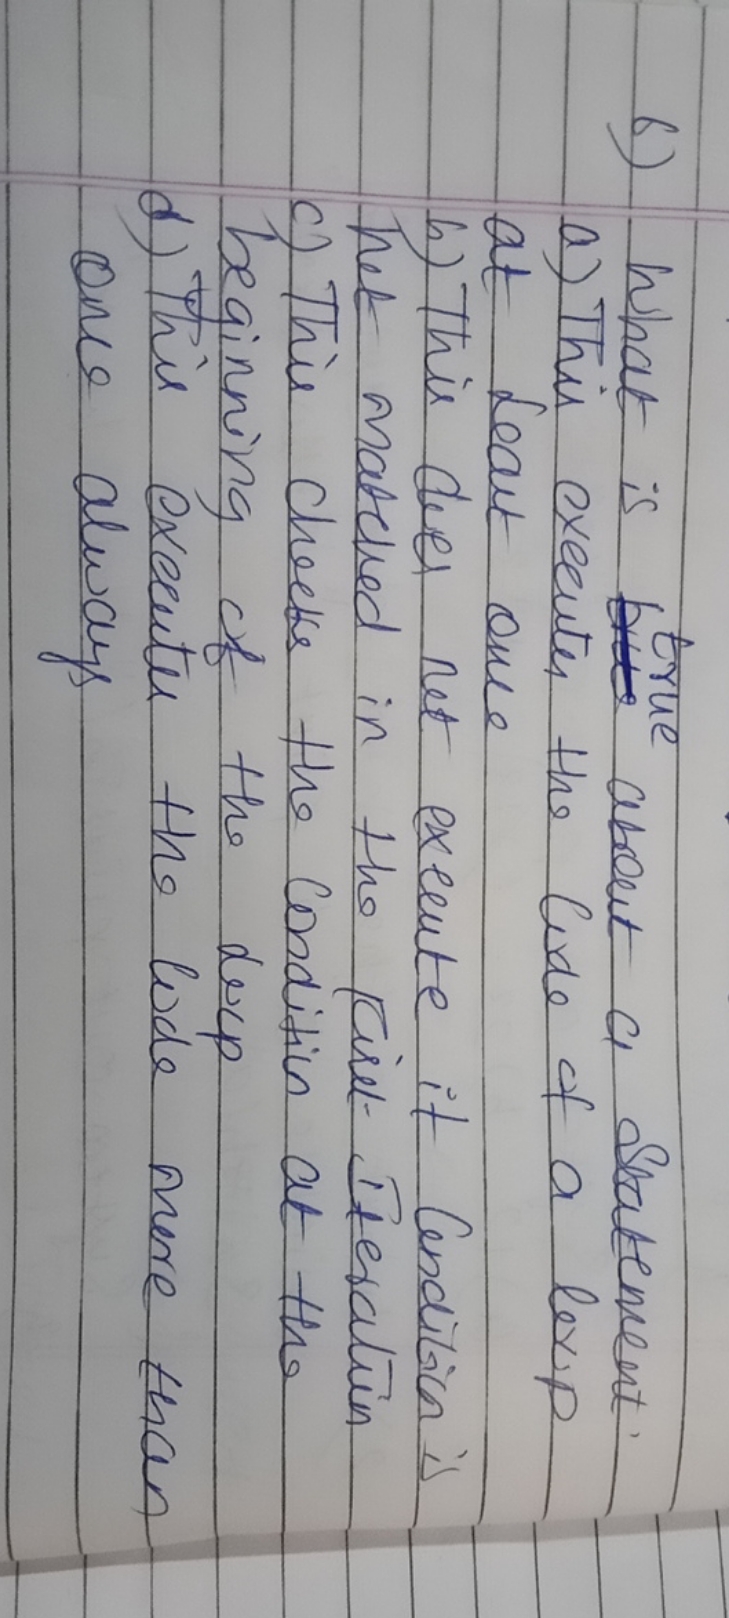 6) What is true about a Statement.
a) This executes the Code of a loop
at Least once
b) This does not execute if Condition is
not matched in the First Iteration
c) This checks the Condition at the
beginning of the loop
d) This executes the Code more than
once always